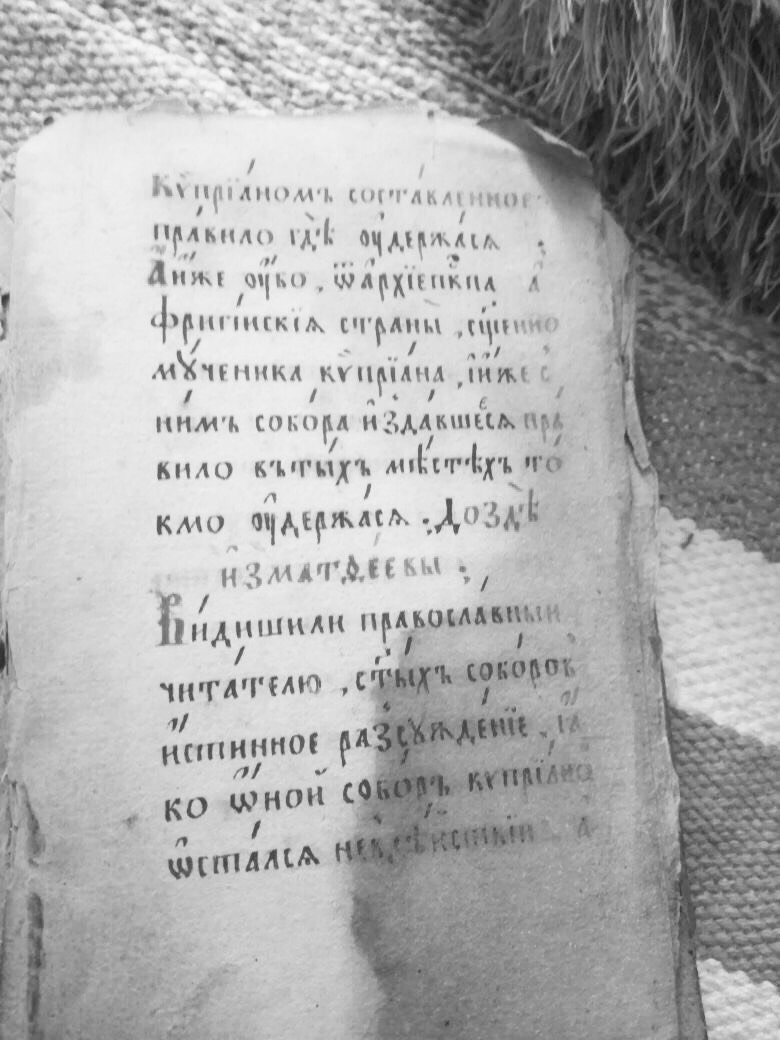 кѷпрїа́номъ соста́вленное
пра́вило гдѣ̀ ᲂу҆держа́сѧ :
А҆́иже ᲂу҆́бо , ѿа҆рхїепⷭ҇кпа а҆
фриги́нскїѧ страны̀ , сщ҃енно
мꙋ́ченика кѷпрїа́на , і҆и҆́же с
ни́мъ собо́ра и҆зда́вшеесѧ пра́
вило въты́хъ мѣ́стѣхъ то́
кмо ᲂу҆держа́сѧ : Доздѣ̀
и҆зматѳе́евы :
Ви́дишили правосла́вныи
чита́телю , ст҃ы́хъ собо́ров
и҆́стинное разсꙋжде́нїе , ꙗ҆́
ко ѻ҆́ной собо́ръ кѷпрїа́но
ѡ҆ста́лсѧ а҆